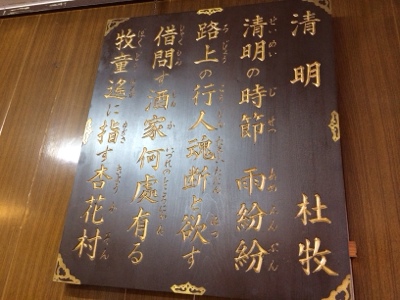 清明 杜牧
清明の時節 雨紛紛
路上の行人魂断と欲す
借問す酒家何處有る
牧童遙に指す杏花村